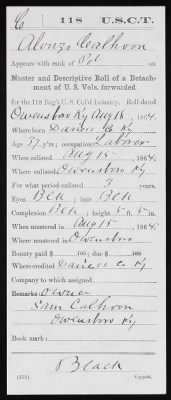 C | 118 | U.S.C.T.
Alonzo Calhoon
Appears with rank of Pvt on
Muster and Descriptive Roll of a Detach-
ment of U. S. Vols. forwarded
for the 118 Reg't U. S. Col'd Infantry. Roll dated
Owensboro Ky Aug 18, 1864.
Where born Daviess Co Ky
Age 37 y'rs; occupation Laborer
When enlisted Aug 15, 1864.
Where enlisted Owensboro Ky
For what period enlisted 3 years.
Eyes Blk; hair Blk
Complexion Blk; height 5 ft. 5 in.
When mustered in Aug 15, 1864.
Where mustered in Owensboro
Bounty paid $ 100; due $ 100
Where credited Daviess Co Ky
Company to which assigned
Remarks: Owner
Sam Calhoon
Owensboro Ky
Book mark:
Black
Copyist.